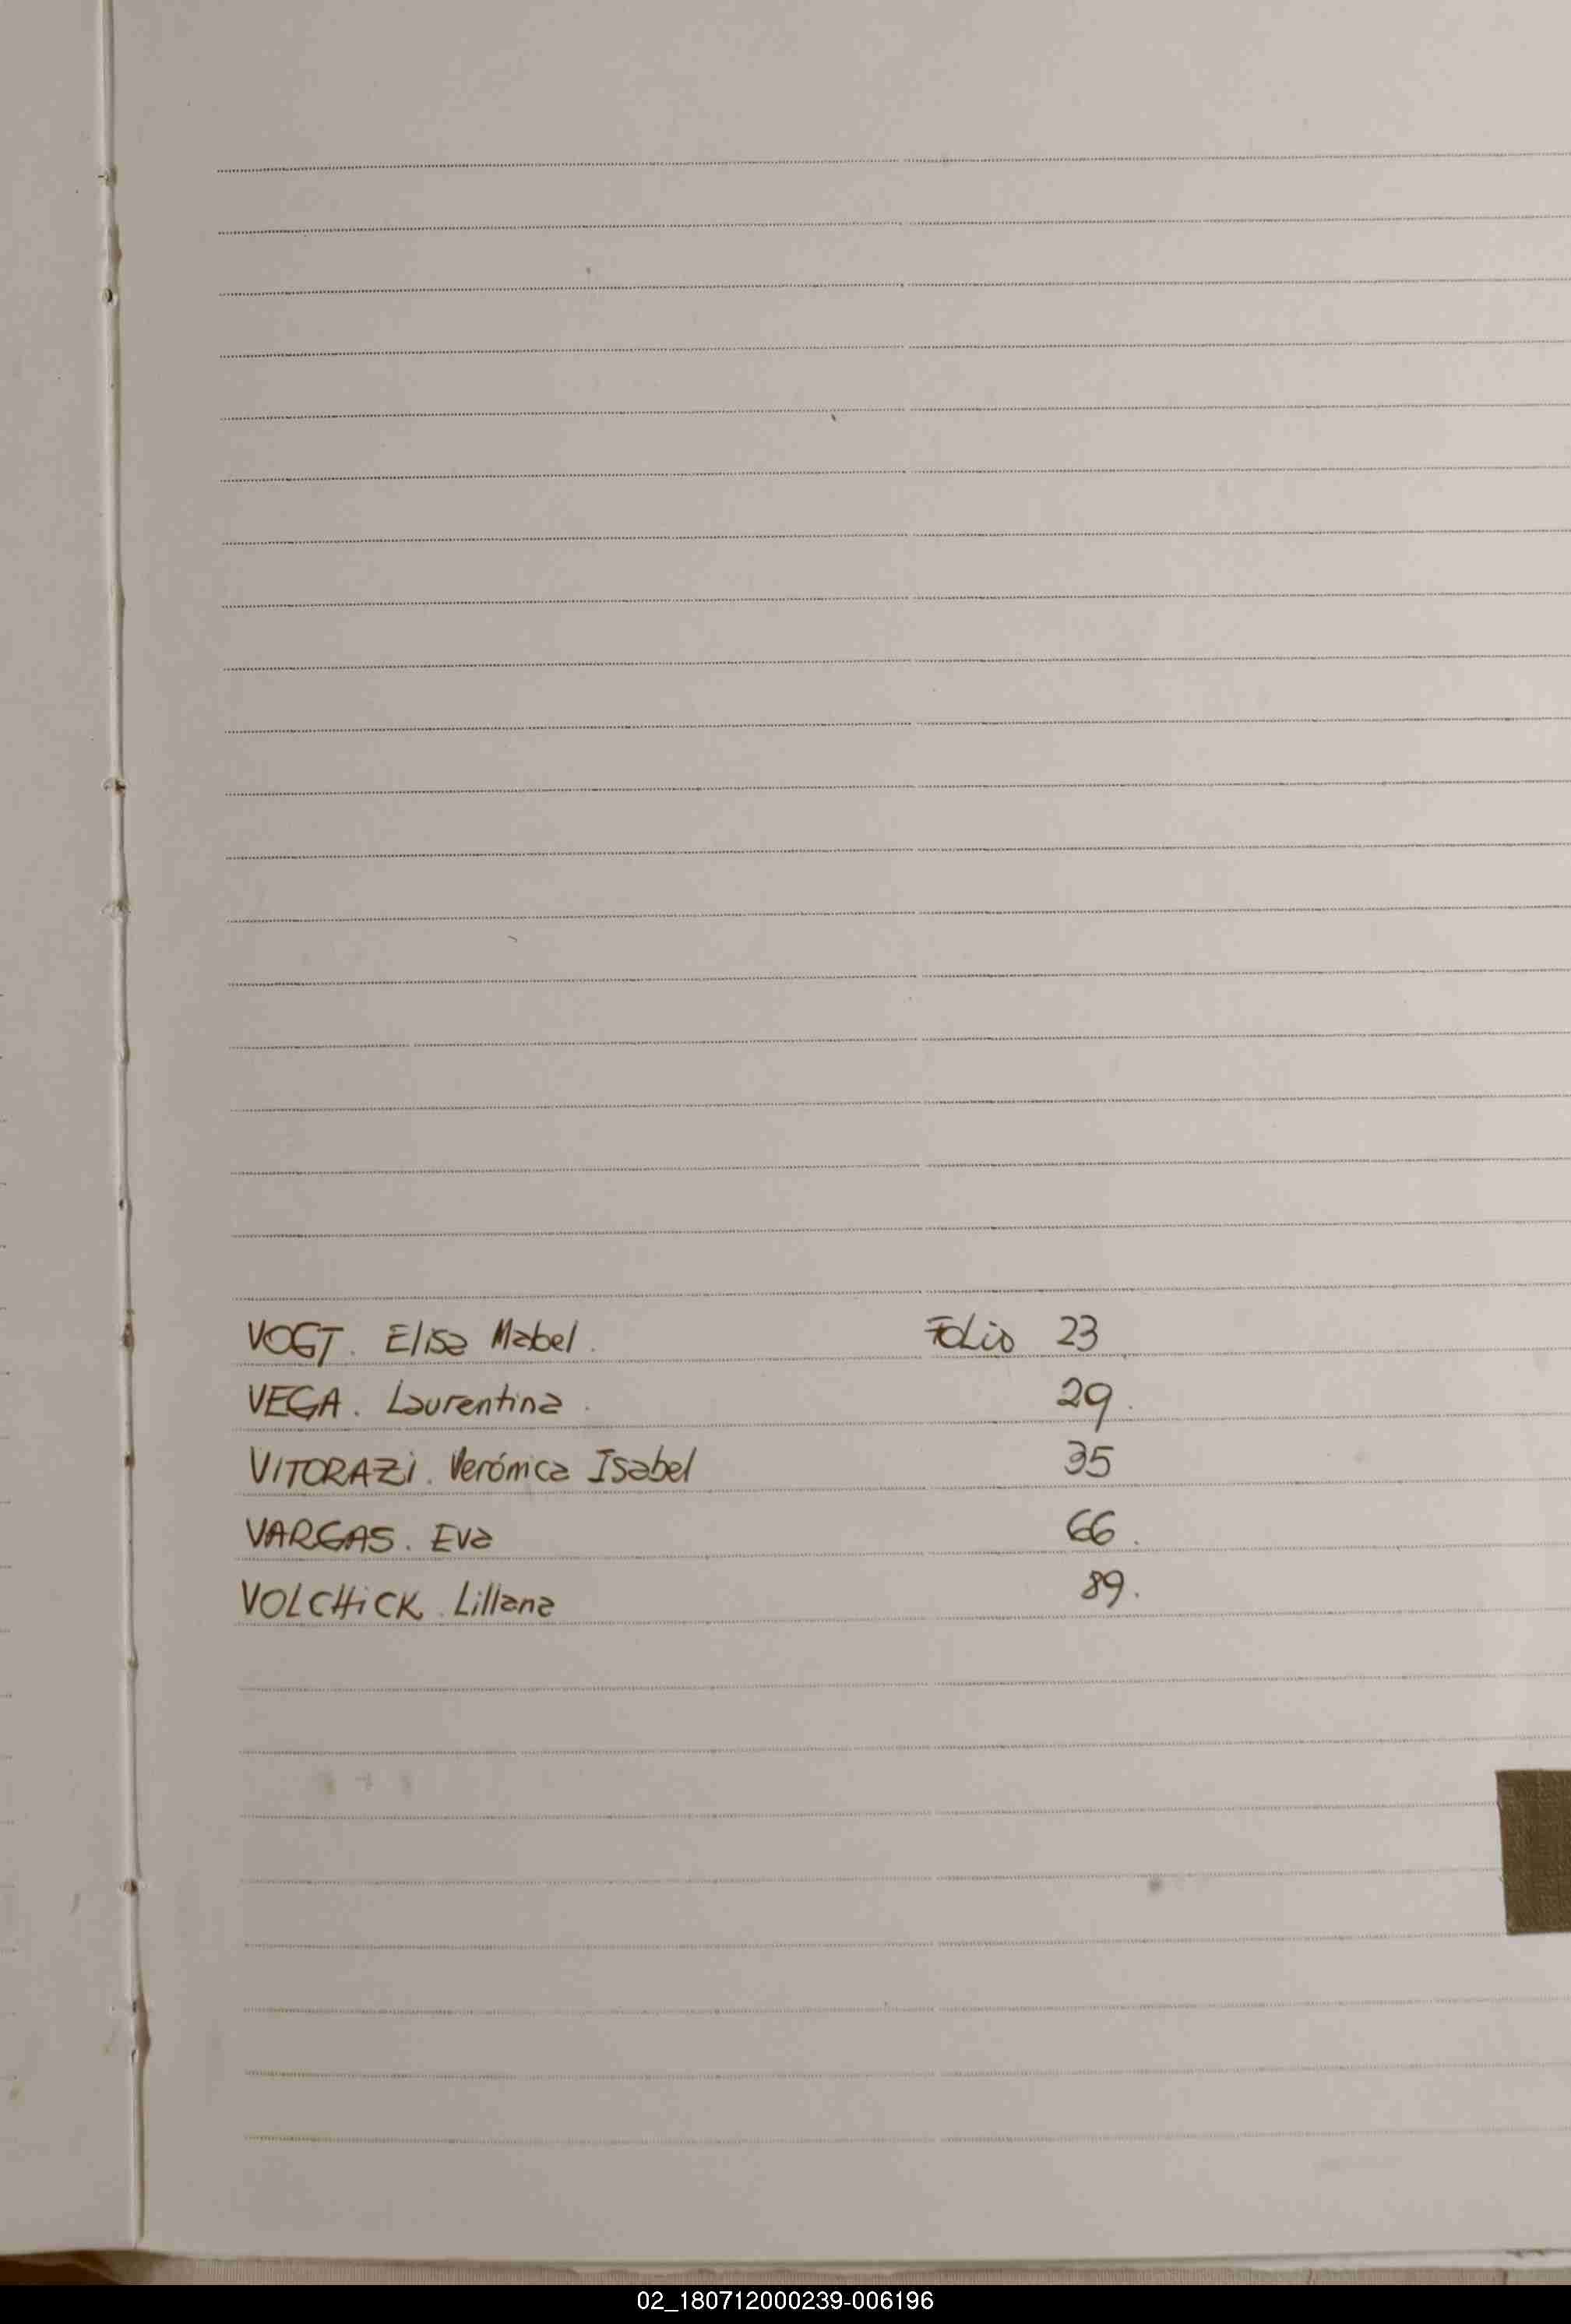 VOGT. Elisa Mabel. Folio 23
VEGA. Laurentina. 29.
VITORAZi. Verónica Isabel 35
VARGAS. Eva 66.
VOLCHiCK. Liliana 89.
02_180712000239-006196